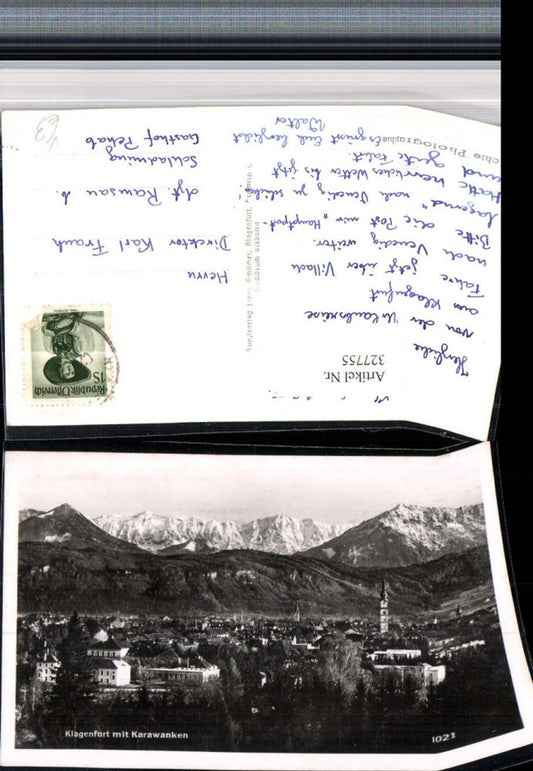 Herzliche
von der Urlaubsreise
aus Klagenfurt
Fahre jetzt über Villach
nach Venedig weiter.
Bitte die Post mir „Hauptpost-
lagernd" nach Venedig zu
Hatte herrliches Wetter bis jetzt
und gute Fahrt.
Es grüsst Euch herzlichst
Walter
Herrn
Direktor Karl Frank
dzt. Ramsau b.
Schladming
Gasthof Pehab
€3
Artikel Nr.
327755
Republik Österreich
1S
Klagenfurt mit Karawanken
1021